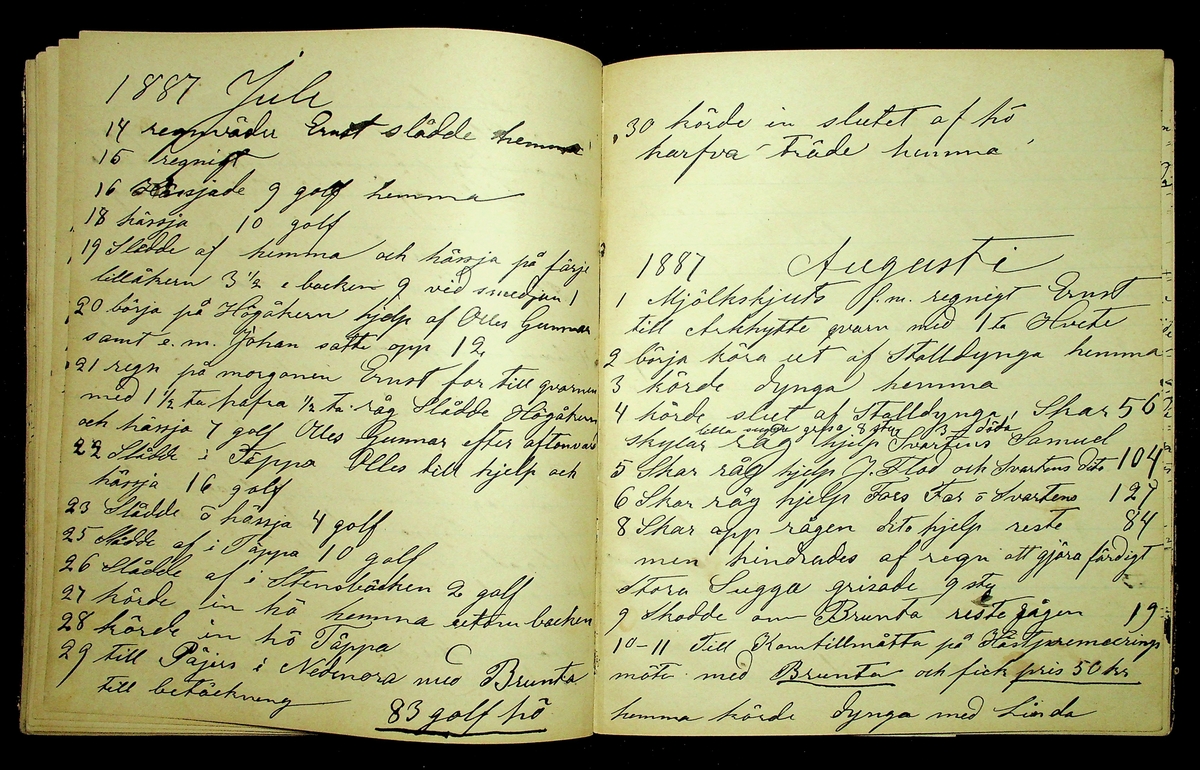 1887 Juli
14 regnväder Ernst slådde hemma
15 regnigt
16 Hässjade 9 golf hemma
18 hässja 10 golf
19 Slådde af hemma och hässja på färje
tillåkern 3 1/2 e backen 9 vid smedjan 1
20 börja på Högåkern hjelp af Olles Gunnar
samt e.m. Johan satte opp 12
21 regn på morgonen Ernst for till qvarnen
med 1 1/2 ta hafra 1/2 ta råg Slådde Högåkern
och hässja 7 golf Olles Gunnar efter aftonvard
22 Slådde i Täppa Olles till hjelp och
hässja 16 golf
23 Slådde o hässja 4 golf
25 Slådde af i Täppa 10 golf
26 Slådde af i Stensbäcken 2 golf
27 körde in hö hemma utom backen
28 körde in hö Täppa
29 till Päjers i Nedernora med Brunta
till betäckning
83 golf hö
30 körde in slutet af hö
harfva träde hemma
1887 Augusti
1 Mjölkskjuts f.m. regnigt Ernst
till Arkhytte qvarn med 1 ta Hvete
2 börja köra ut af Stalldynga hemma
3 körde dynga hemma
4 körde slut af Stalldynga, Skar 56
lilla sugga grisa 8 sty 3 döda
skylar råg hjelp Svartens Samuel
5 Skar råg hjelp J. Flod och Svartens dito 104
6 Skar råg hjelp Fors Far o Svartens 127
8 Skar opp rågen dito hjelp reste 84
men hindrades af regn att gjöra färdigt
stora Sugga grisade 9 sty
9 Skodde om Brunta reste rågen 19
10-11 Till Komtillmåtta på Hästpremierings
möte med Brunta och fick pris 50 kr
hemma körde dynga med Linda